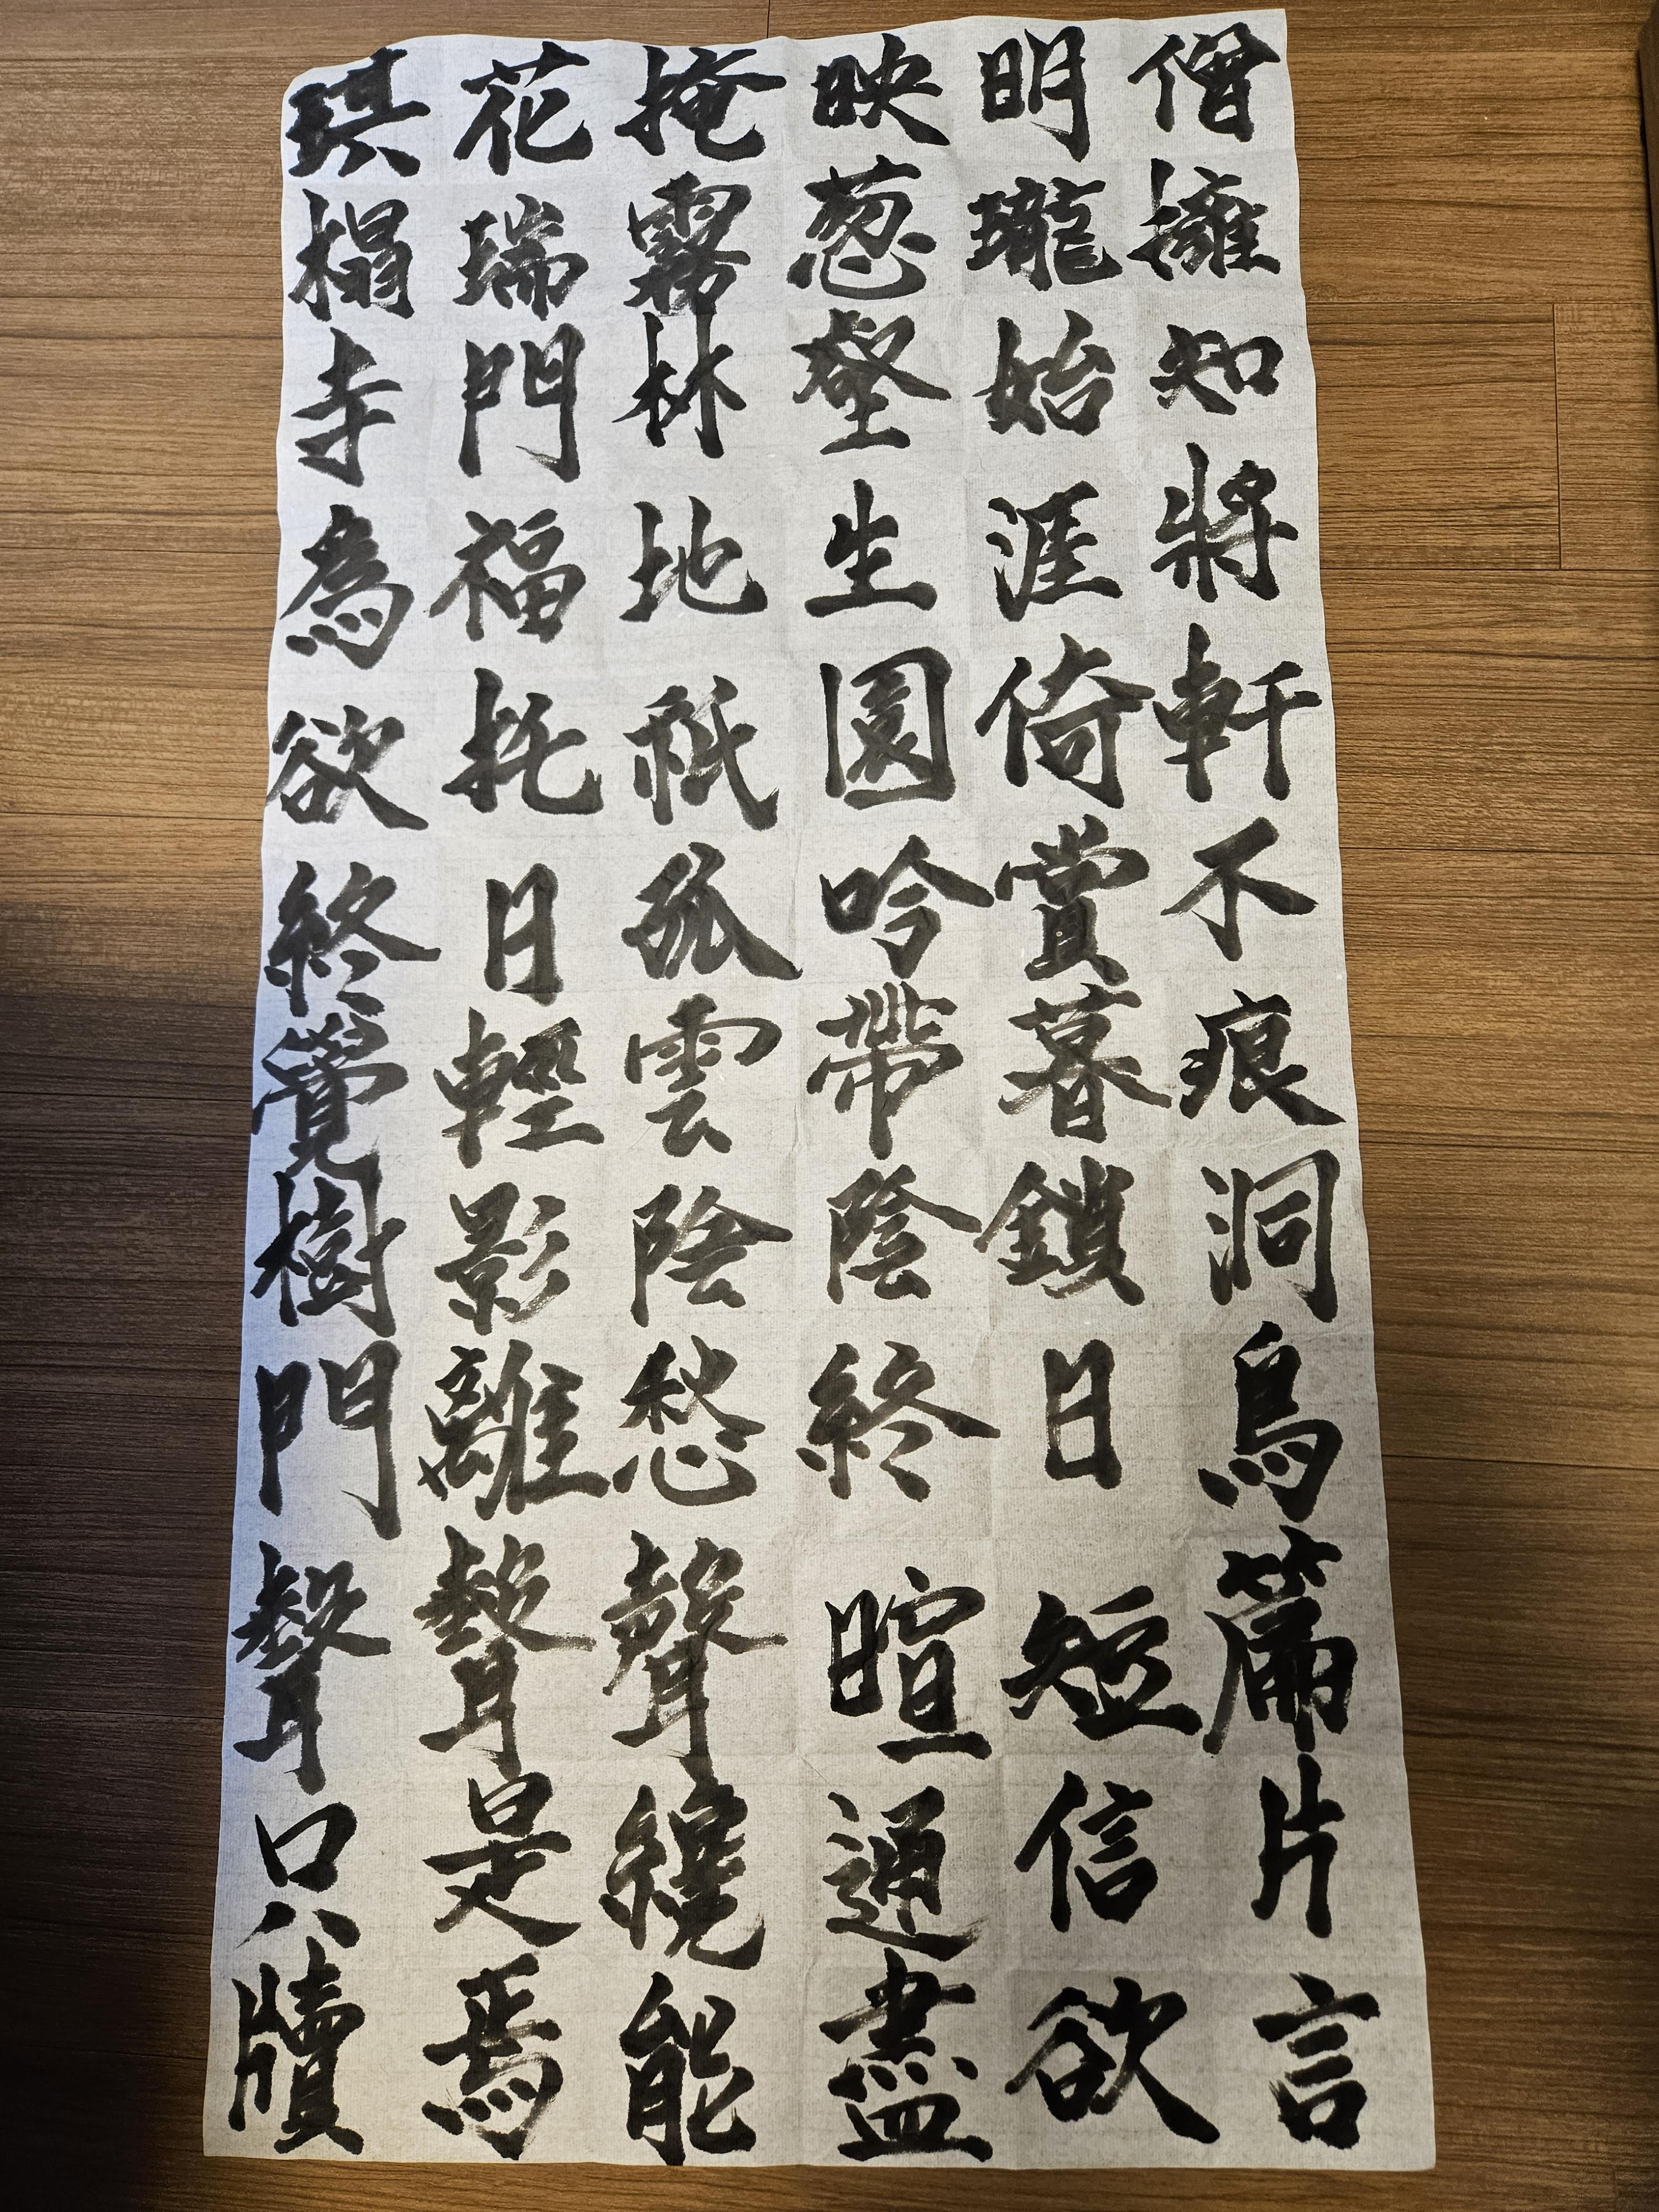 僧擁知將軒不痕洞鳥篇片言
明瓏始涯倚賞暮鎖日短信欲
映葱壑生園吟帶陰終暄通盡
掩霧林地祇孤雲陰愁聲繞能
花瑞門福托日輕影離聲是焉
琪榻寺為欲終覺樹門聲口八牘